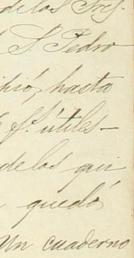 de los Tres
S. Pedro
ibió, hasta
fs. útiles—
de los qui
quedó
Un cuaderno